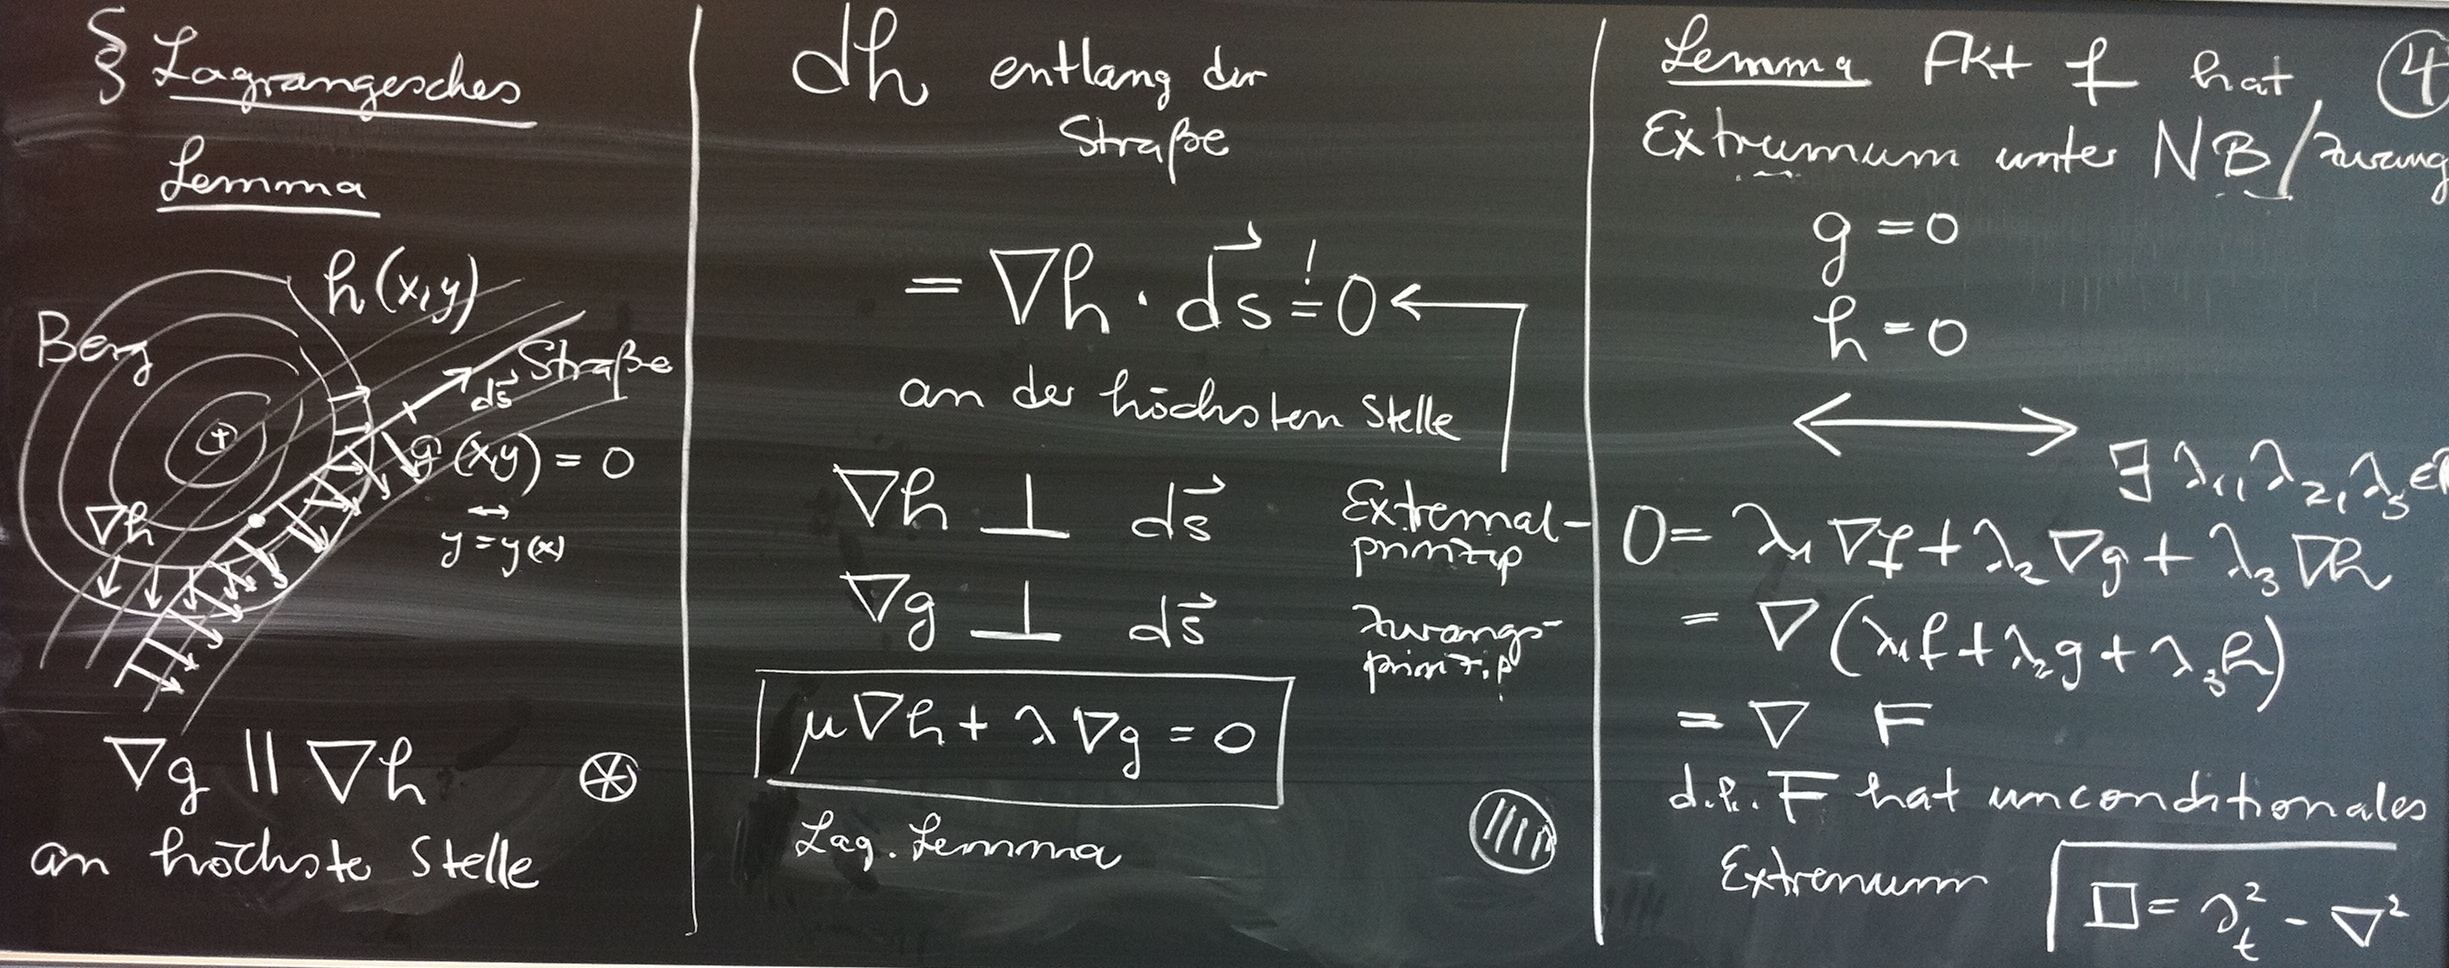 § Lagrangesches
Lemma
h(x,y)
Berg
Straße
d\vec{s}
g(x,y) = 0
↔
y = y(x)
∇h
∇g || ∇h ⊛
an höchste Stelle
dh entlang der
Straße
= ∇h · d\vec{s} \overset{!}{=} 0 ←
an der höchsten Stelle
∇h ⊥ d\vec{s} Extremal-
prinzip
∇g ⊥ d\vec{s} Zwangs-
prinzip
μ∇h + λ∇g = 0
Lag. Lemma
Lemma Fkt f hat ④
Extremum unter NB/Zwang
g = 0
h = 0
⟷
∃ λ₁, λ₂, λ₃ ∈
0 = λ₁∇f + λ₂∇g + λ₃∇h
= ∇(λ₁f + λ₂g + λ₃h)
= ∇ F
d.h. F hat unconditionales
Extremum
□ = ∂ₜ² - ∇²